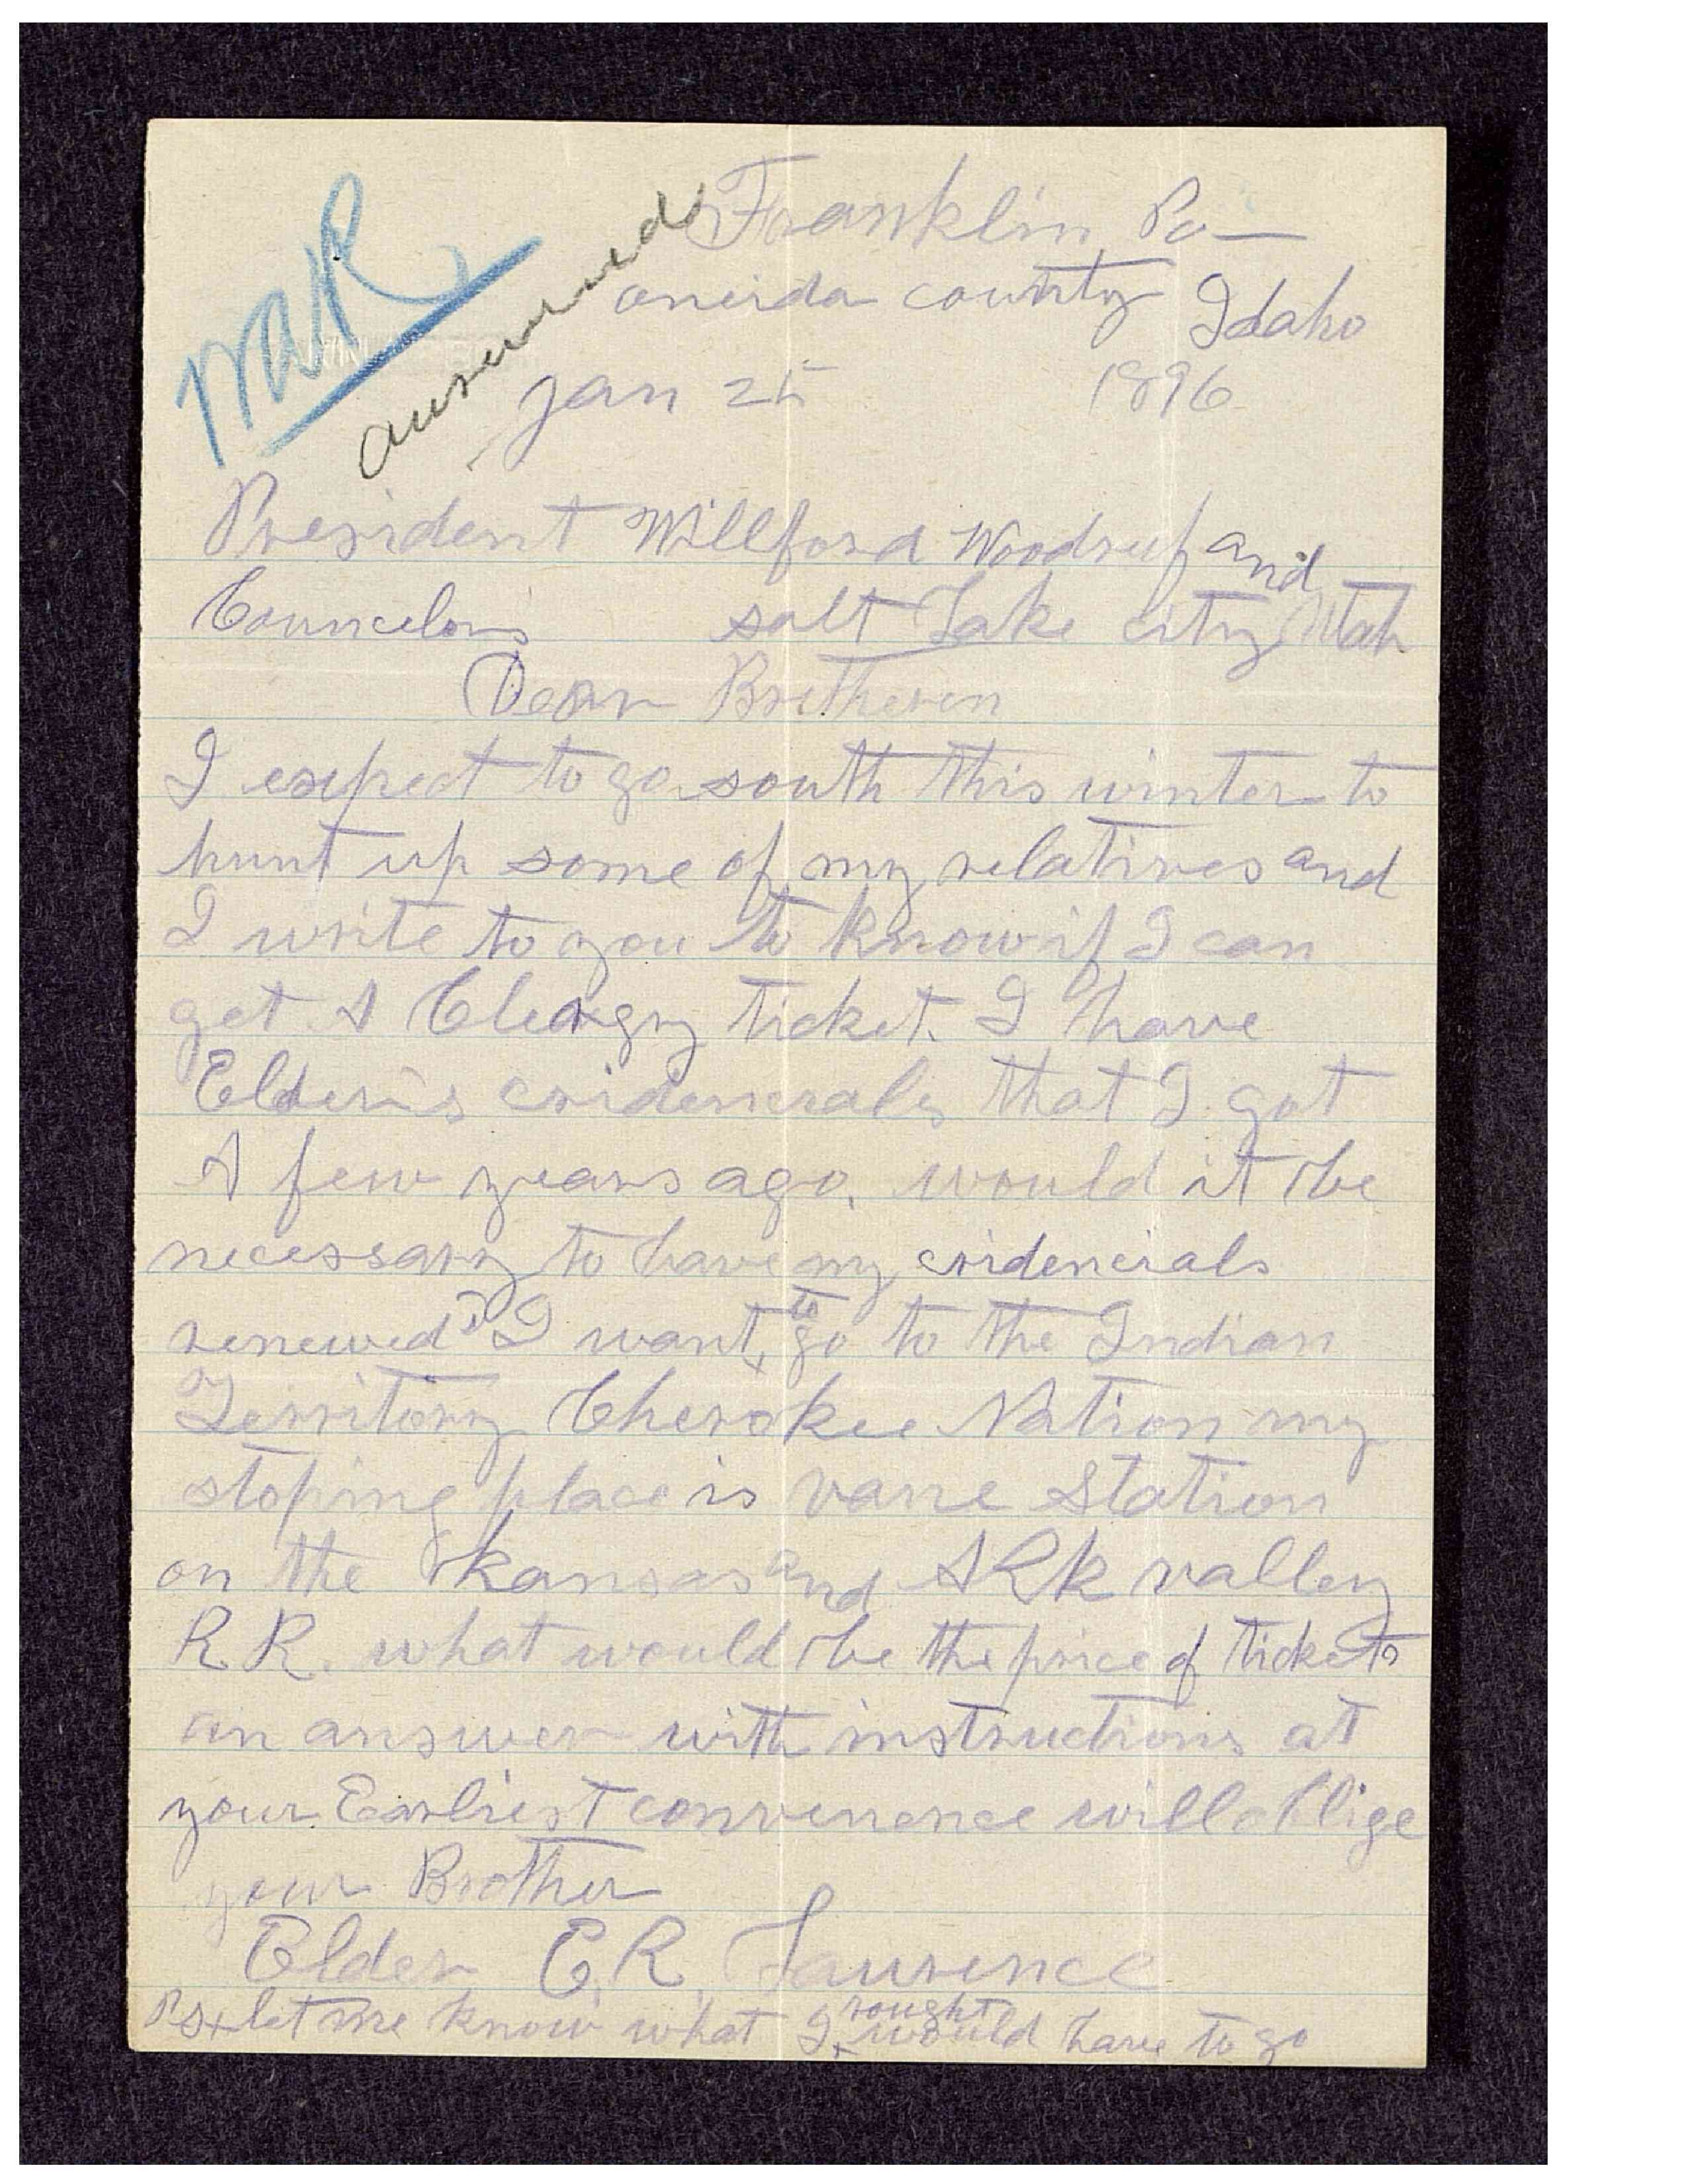 Franklin, Po—
oneida county Idaho
Jan 25 1896
answered
President Willford Woodruf and
Councelors salt Lake city Utah
Dear Bretheren
I exspect to go south this winter to
hunt up some of my relatives and
I write to you to know if I can
get A Cleargy ticket. I have
Elder's cridencials that I got
A few years ago. would it be
necessary to have my cridencials
renewed? I want to go to the Indian
Territory Cherokee Nation my
stoping place is vane Station
on the kansas and ARk valley
R R. what would be the price of tickets
an answer with instructions at
your Earliest convenence will oblige
your Brother
Elder E. R. Lawrence
Ps + let me know what I rought would have to go